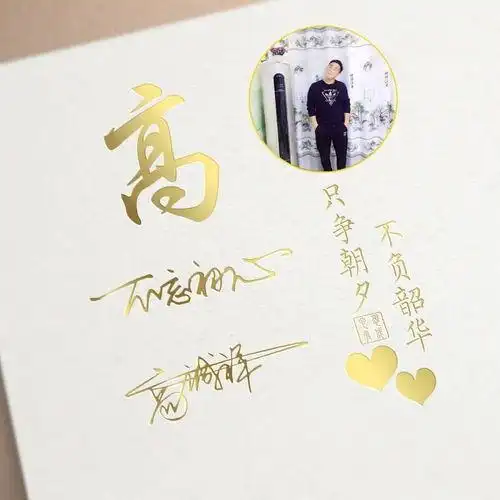 高
不忘初心
高诚祥
只争朝夕
不负韶华